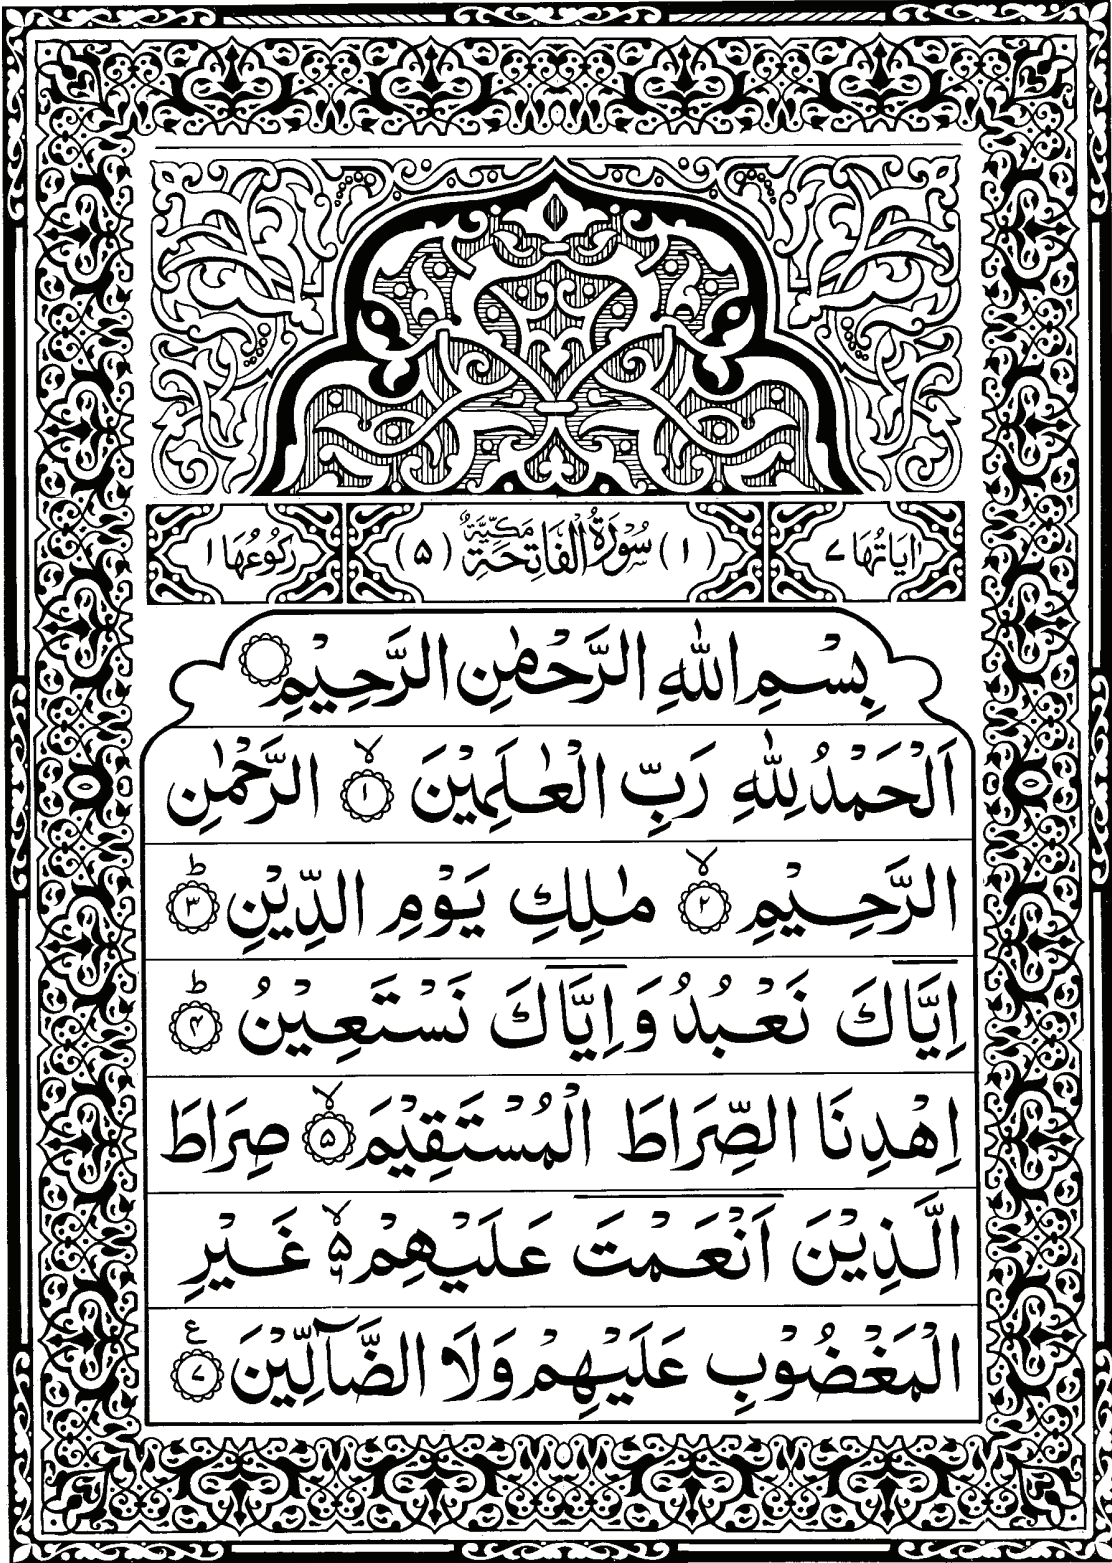 اٰيَاتُهَا ٧ (١) سُوْرَةُ الْفَاتِحَةِ مَكِّيَّةٌ (٥) رُكُوْعُهَا ١
بِسْمِ اللّٰهِ الرَّحْمٰنِ الرَّحِيْمِ ۝
اَلْحَمْدُ لِلّٰهِ رَبِّ الْعٰلَمِيْنَ ۙ﴿١﴾ الرَّحْمٰنِ
الرَّحِيْمِ ۙ﴿٢﴾ مٰلِكِ يَوْمِ الدِّيْنِ ؕ﴿٣﴾
اِيَّاكَ نَعْبُدُ وَ اِيَّاكَ نَسْتَعِيْنُ ؕ﴿۴﴾
اِهْدِنَا الصِّرَاطَ الْمُسْتَقِيْمَ ۙ﴿۵﴾ صِرَاطَ
الَّذِيْنَ اَنْعَمْتَ عَلَيْهِمْ ۙ۵ ٦ غَيْرِ
الْمَغْضُوْبِ عَلَيْهِمْ وَلَا الضَّآلِّيْنَ ع﴿٧﴾